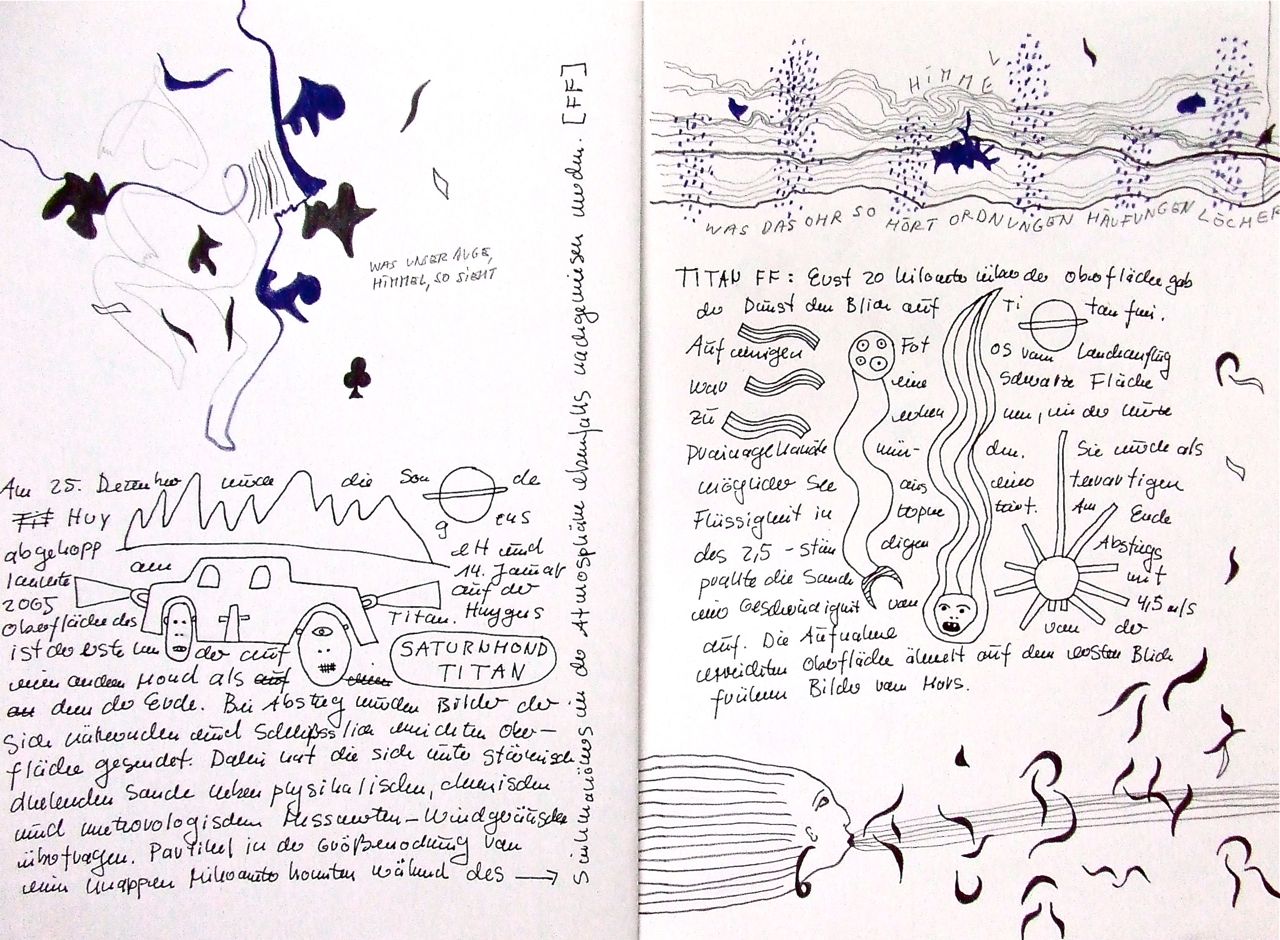 WAS UNSER AUGE,
HIMMEL, SO SIEHT
Am 25. Dezember wurde die Son de
Huy g ens
abgekopp elt und
am 14. Januar
landete auf der
2005
Oberfläche des Titan. Huygens
ist die erste un der auf
SATURNMOND
TITAN
einem anderen Mond als
dem der Erde. Bei Abstieg wurden Bilder der
sich nähernden und schliesslich erreichten Ober-
fläche gesendet. Dabei hat die sich unter
drehenden Sonde neben physikalischen, chemischen
und meteorologischen Messwerten - Windgeräusche
übertragen. Partikel in der Größenordnung von
einem knappen Mikrometer konnten während des →
Sinkmanövers in der Atmosphäre ebenfalls nachgewiesen werden. [FF]
HIMMEL
WAS DAS OHR SO HÖRT ORDNUNGEN HÄUFUNGEN LÖCHER
TITAN FF: Erst 20 Kilometer über der Oberfläche gab
der Dunst den Blick auf Ti tan frei.
Auf einigen Fot os vom Landeanflug
war eine schwarze Fläche
zu sehen nen, in der kurze
Drainagekanäle mün- den. Sie wurde als
möglicher See aus einer teerartigen
Flüssigkeit in terpre tiert. Am Ende
des 2,5-stün digen Abstiegs
prallte die Sonde mit
einer Geschwindigkeit von 4,5 m/s
auf. Die Aufnahme von der
erreichten Oberfläche ähnelt auf dem ersten Blick
frühern Bilder vom Mars.